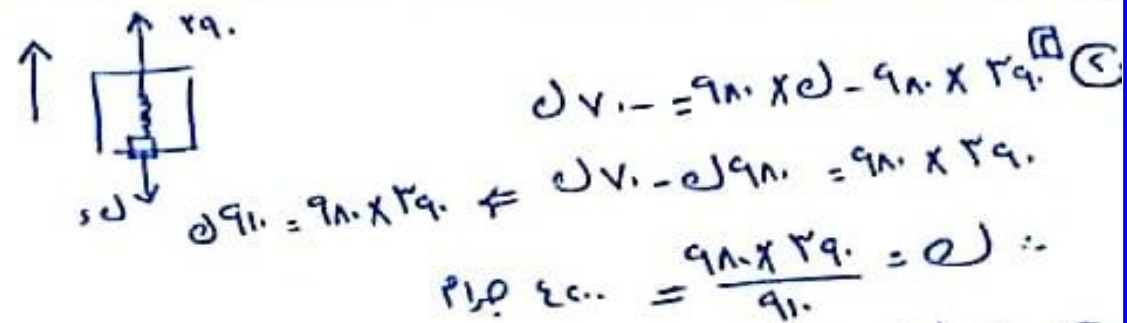 ٣٩٠
② [أ] ٣٩٠ × ٩٨٠ - ك × ٩٨٠ = -٧٠ ك
٣٩٠ × ٩٨٠ = ٩٨٠ ك - ٧٠ ك ⇐ ٣٩٠ × ٩٨٠ = ٩١٠ ك
ك ء
∴ ك = ٣٩٠ × ٩٨٠ / ٩١٠ = ٤٢٠٠ جرام